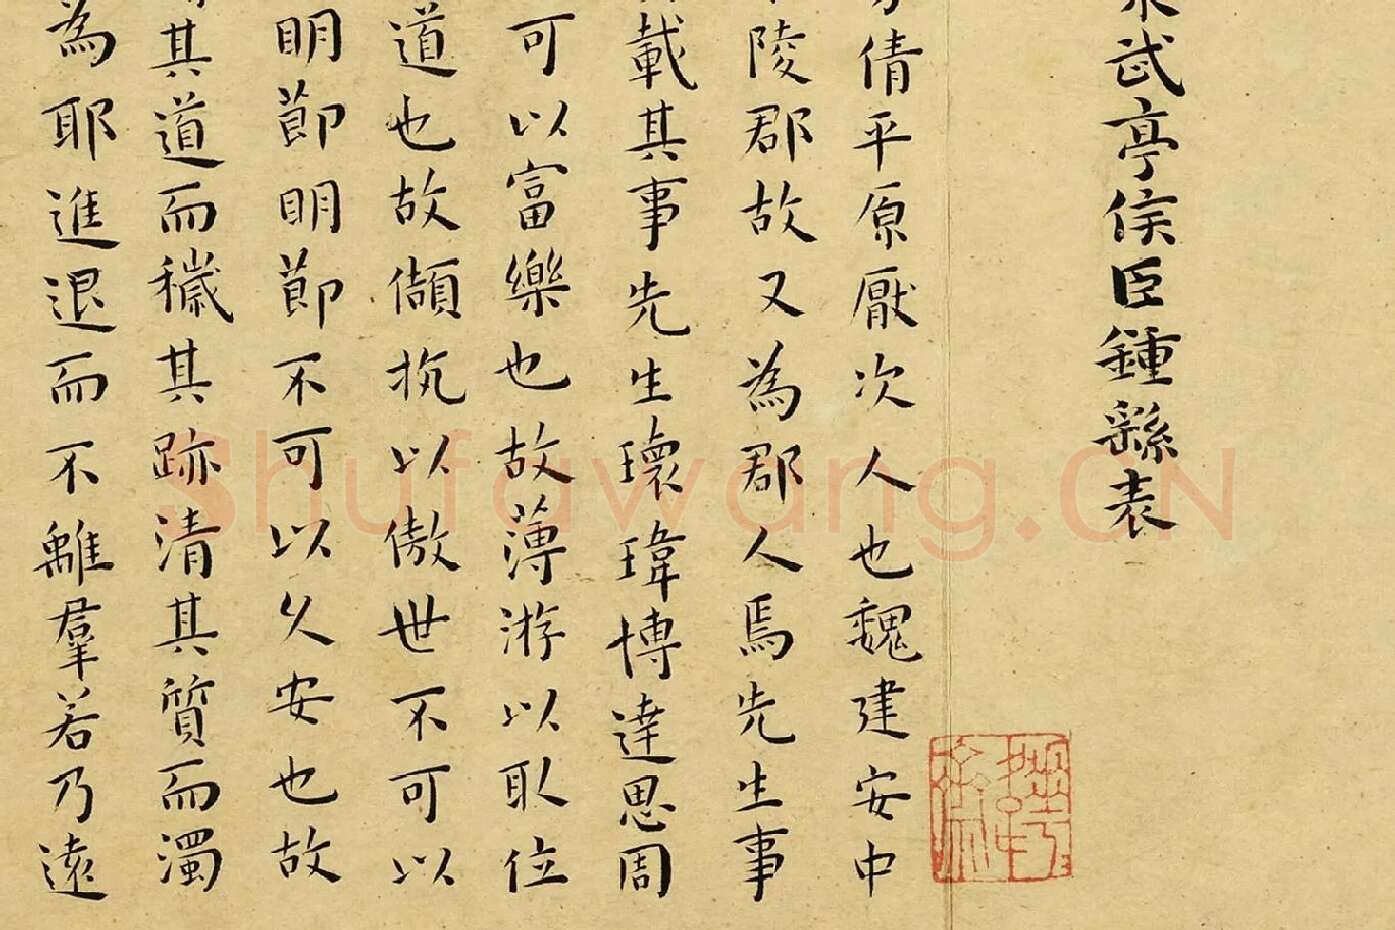 武亭侯臣鍾繇表
倩平原厭次人也魏建安中
陵郡故又為郡人焉先生事
載其事先生瓌瑋博達思周
可以富樂也故薄游以取位
道也故儃抗以傲世不可以
明節明節不可以久安也故
其道而穢其跡清其質而濁
為耶進退而不離羣若乃遠
Shufawang.CN